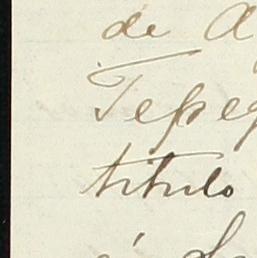 de A
Tepeq
titulo